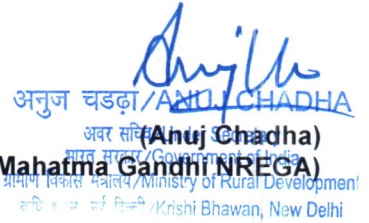 अनुज चडढ़ा/ANUJ CHADHA
अवर सचिव/Under Secretary
(Anuj Chadha)
भारत सरकार/Government of India
Mahatma Gandhi NREGA)
ग्रामीण विकास मंत्रालय/Ministry of Rural Development
कृषि भवन, नई दिल्ली/Krishi Bhawan, New Delhi